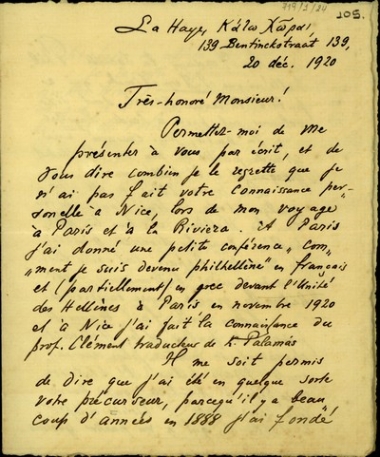 219/3/24
105.
La Haye, Κάτω Χῶραι,
139 Bentinckstraat 139,
20 déc. 1920
Très-honoré Monsieur!
Permettez-moi de me
présenter à vous par écrit, et de
vous dire combien je le regrette que je
n'ai pas fait votre connaissance per-
sonelle à Nice, lors de mon voyage
à Paris et à la Riviera. A Paris
j'ai donné une petite conférence „Com-
„ment je suis devenu philhellène" en français
et (partiellement) en grec devant l'Unité
des Hellènes à Paris en novembre 1920
et à Nice j'ai fait la connaissance du
prof. Clément traducteur de K. Palamás
Il me soit permis
de dire que j'ai été en quelque sorte
votre précurseur, parcequ'il y a beau
coup d'années en 1888 j'ai fondé